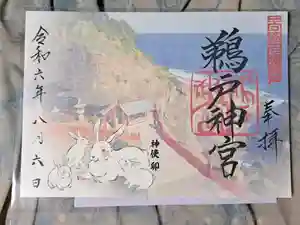 奉拝
鵜戸神宮
神使 卯
令和六年八月六日